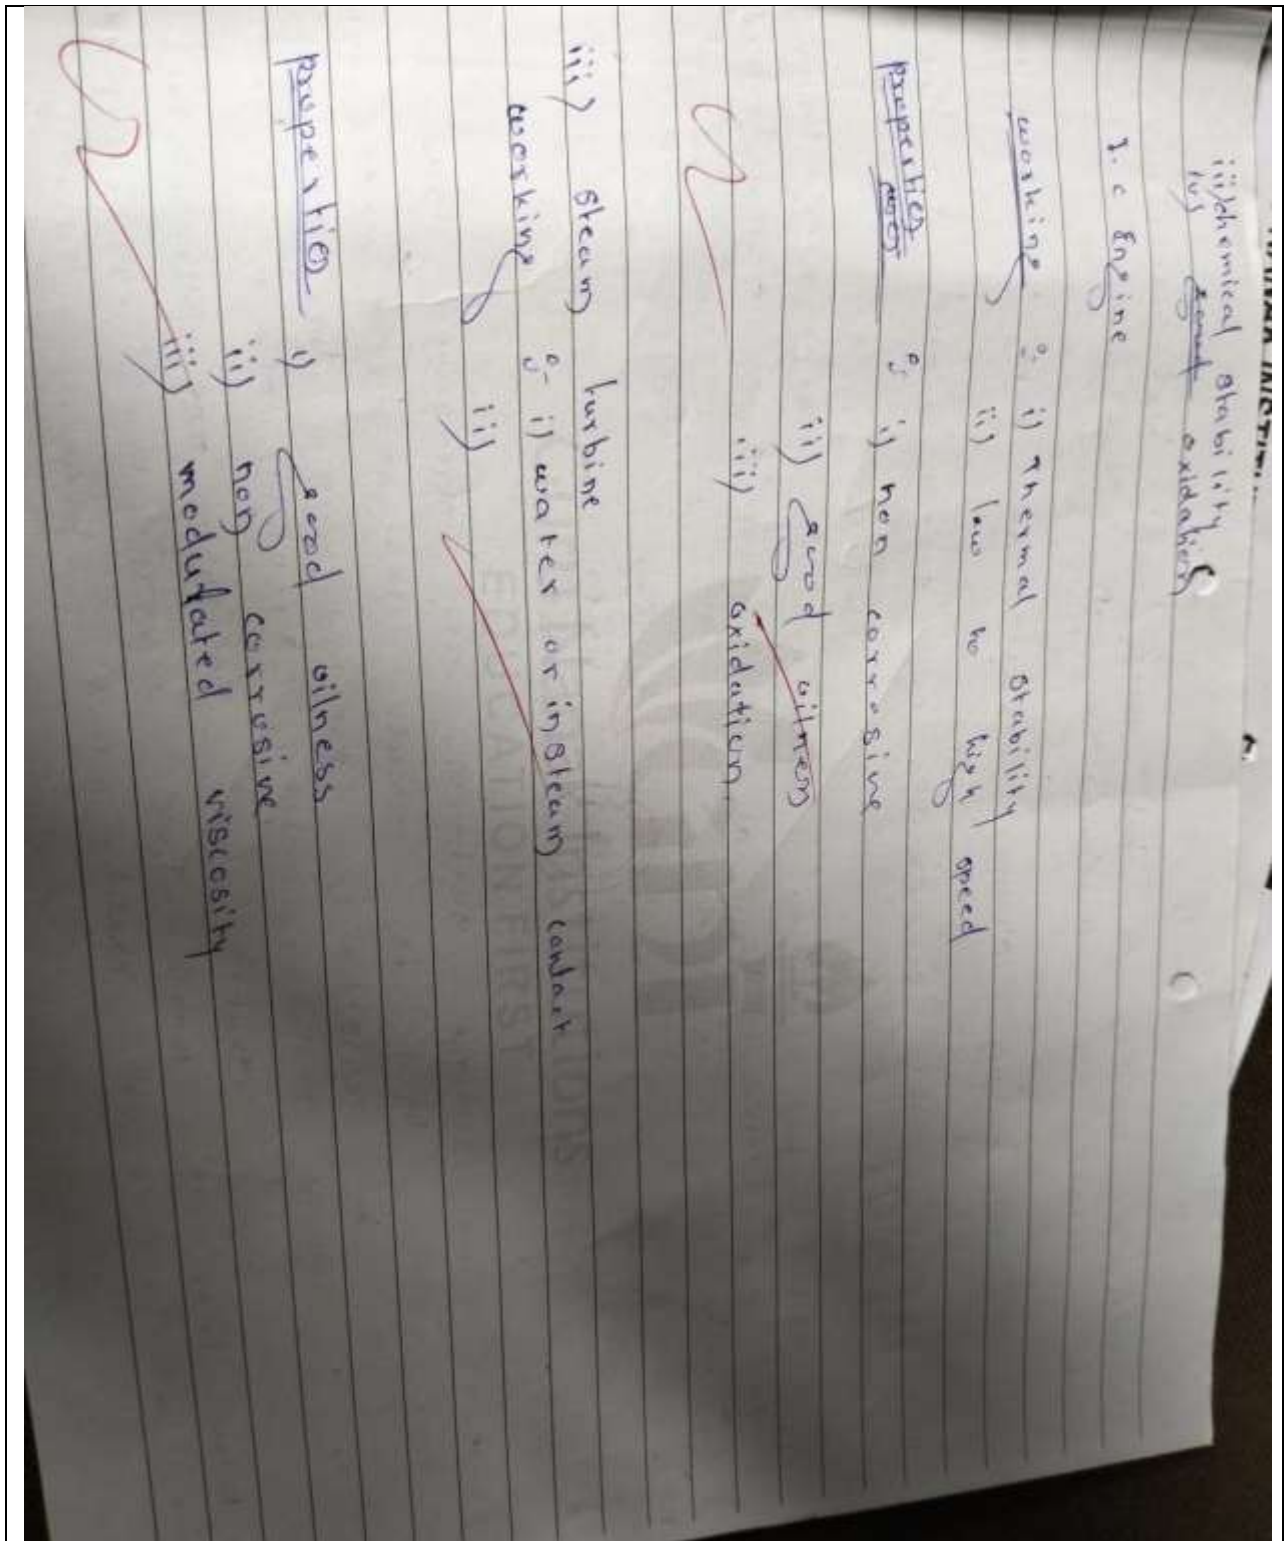 iii) chemical stability
iv) oxidation
I. c Engine
working : i) Thermal stability
ii) low to high speed
properties : i) non corrosive
ii) good oilness
iii) oxidation
iii) steam turbine
working :- i) water or in steam contact
ii)
properties i) good oilness
ii) non corrosive
iii) modulated viscosity
EDUCATION FIRST